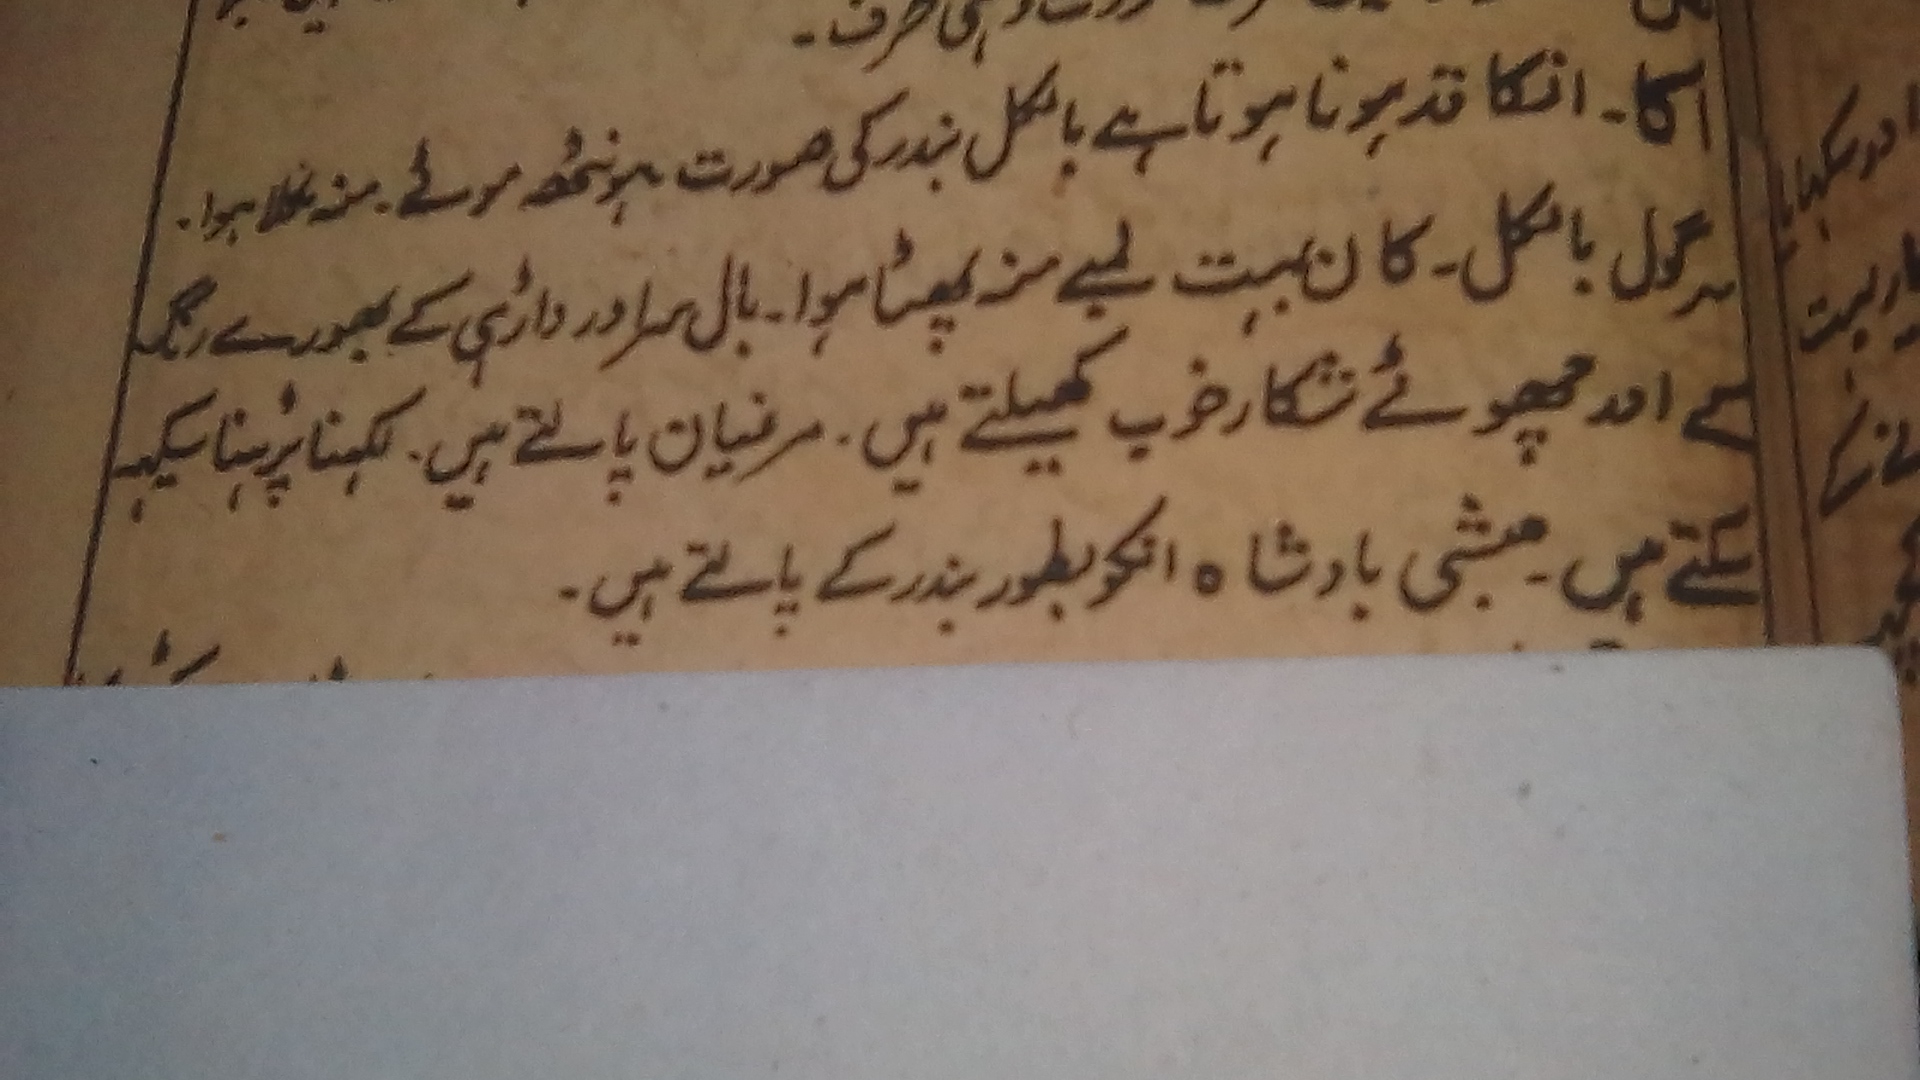 طرف۔
اکا۔ انکا قد بونا ہوتا ہے بالکل بندر کی صورت ہونٹھ موٹے۔ منہ نکلا ہوا۔
سر گول بالکل۔ کان بہت لمبے منہ پھٹا ہوا۔ بال سر اور داڑہی کے بھورے رنگ
کے اور چھوٹے شکار خوب کھیلتے ہیں۔ مرغیان پالتے ہیں۔ لکہنا پڑہنا سیکہہ
سکتے ہیں۔ حبشی بادشاہ انکو بطور بندر کے پالتے ہیں۔